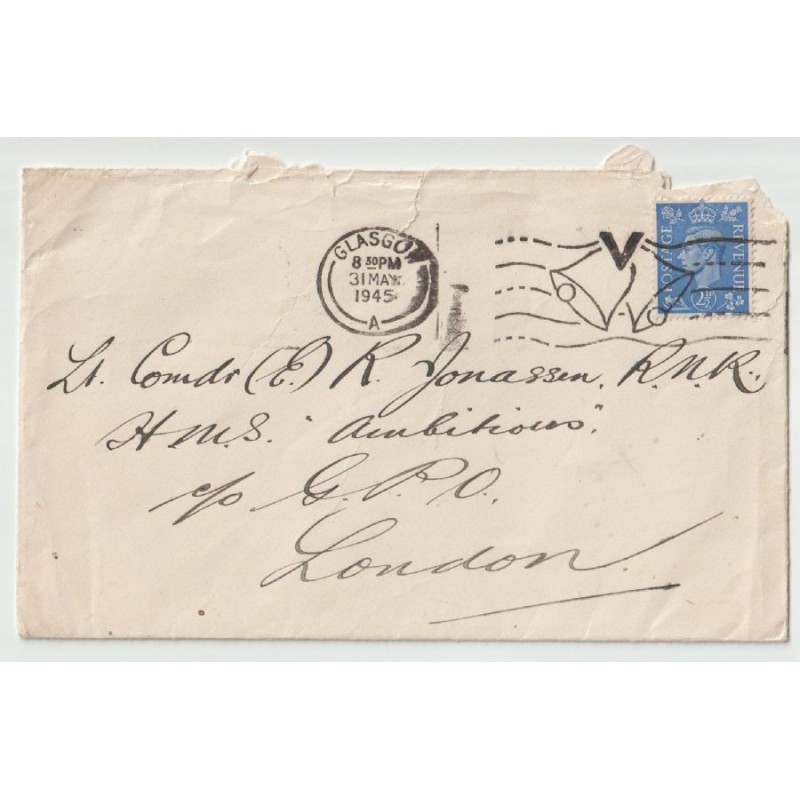 GLASGOW
8 30 PM
31 MAY
1945
A
V
POSTAGE REVENUE
2½D
Lt. Comdr (E.) R. Jonassen, R.N.R.
H.M.S. "Ambitious".
c/o G.P.O.
London.